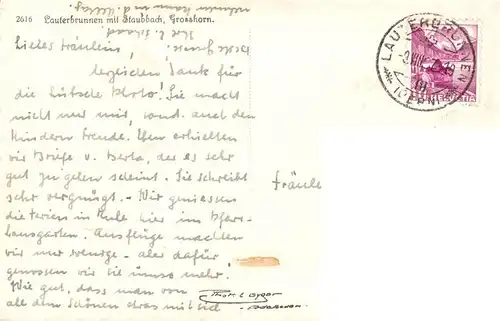 2616 Lauterbrunnen mit Staubbach, Grosshorn.
Liebes Fräulein,
herzlichen Dank für
die hübsche Photo! Sie macht
nicht nur mir, sond. auch den
Kindern Freude. Eben erhielten
wir Briefe v. Berta, der es sehr
gut zu gehen scheint. Sie schreibt
sehr vergnügt. – Wir geniessen
die Ferien in Ruhe hier im Pfarr-
hausgarten. Ausflüge machten
wir nur wenige – aber dafür
genossen wir sie umso mehr.
Wie gut, dass man von
all dem Schönen etwas mit sich
nehmen kann in d. Alltag.
Fräule
LAUTERBRUNNEN
(BERN)
HELVETIA